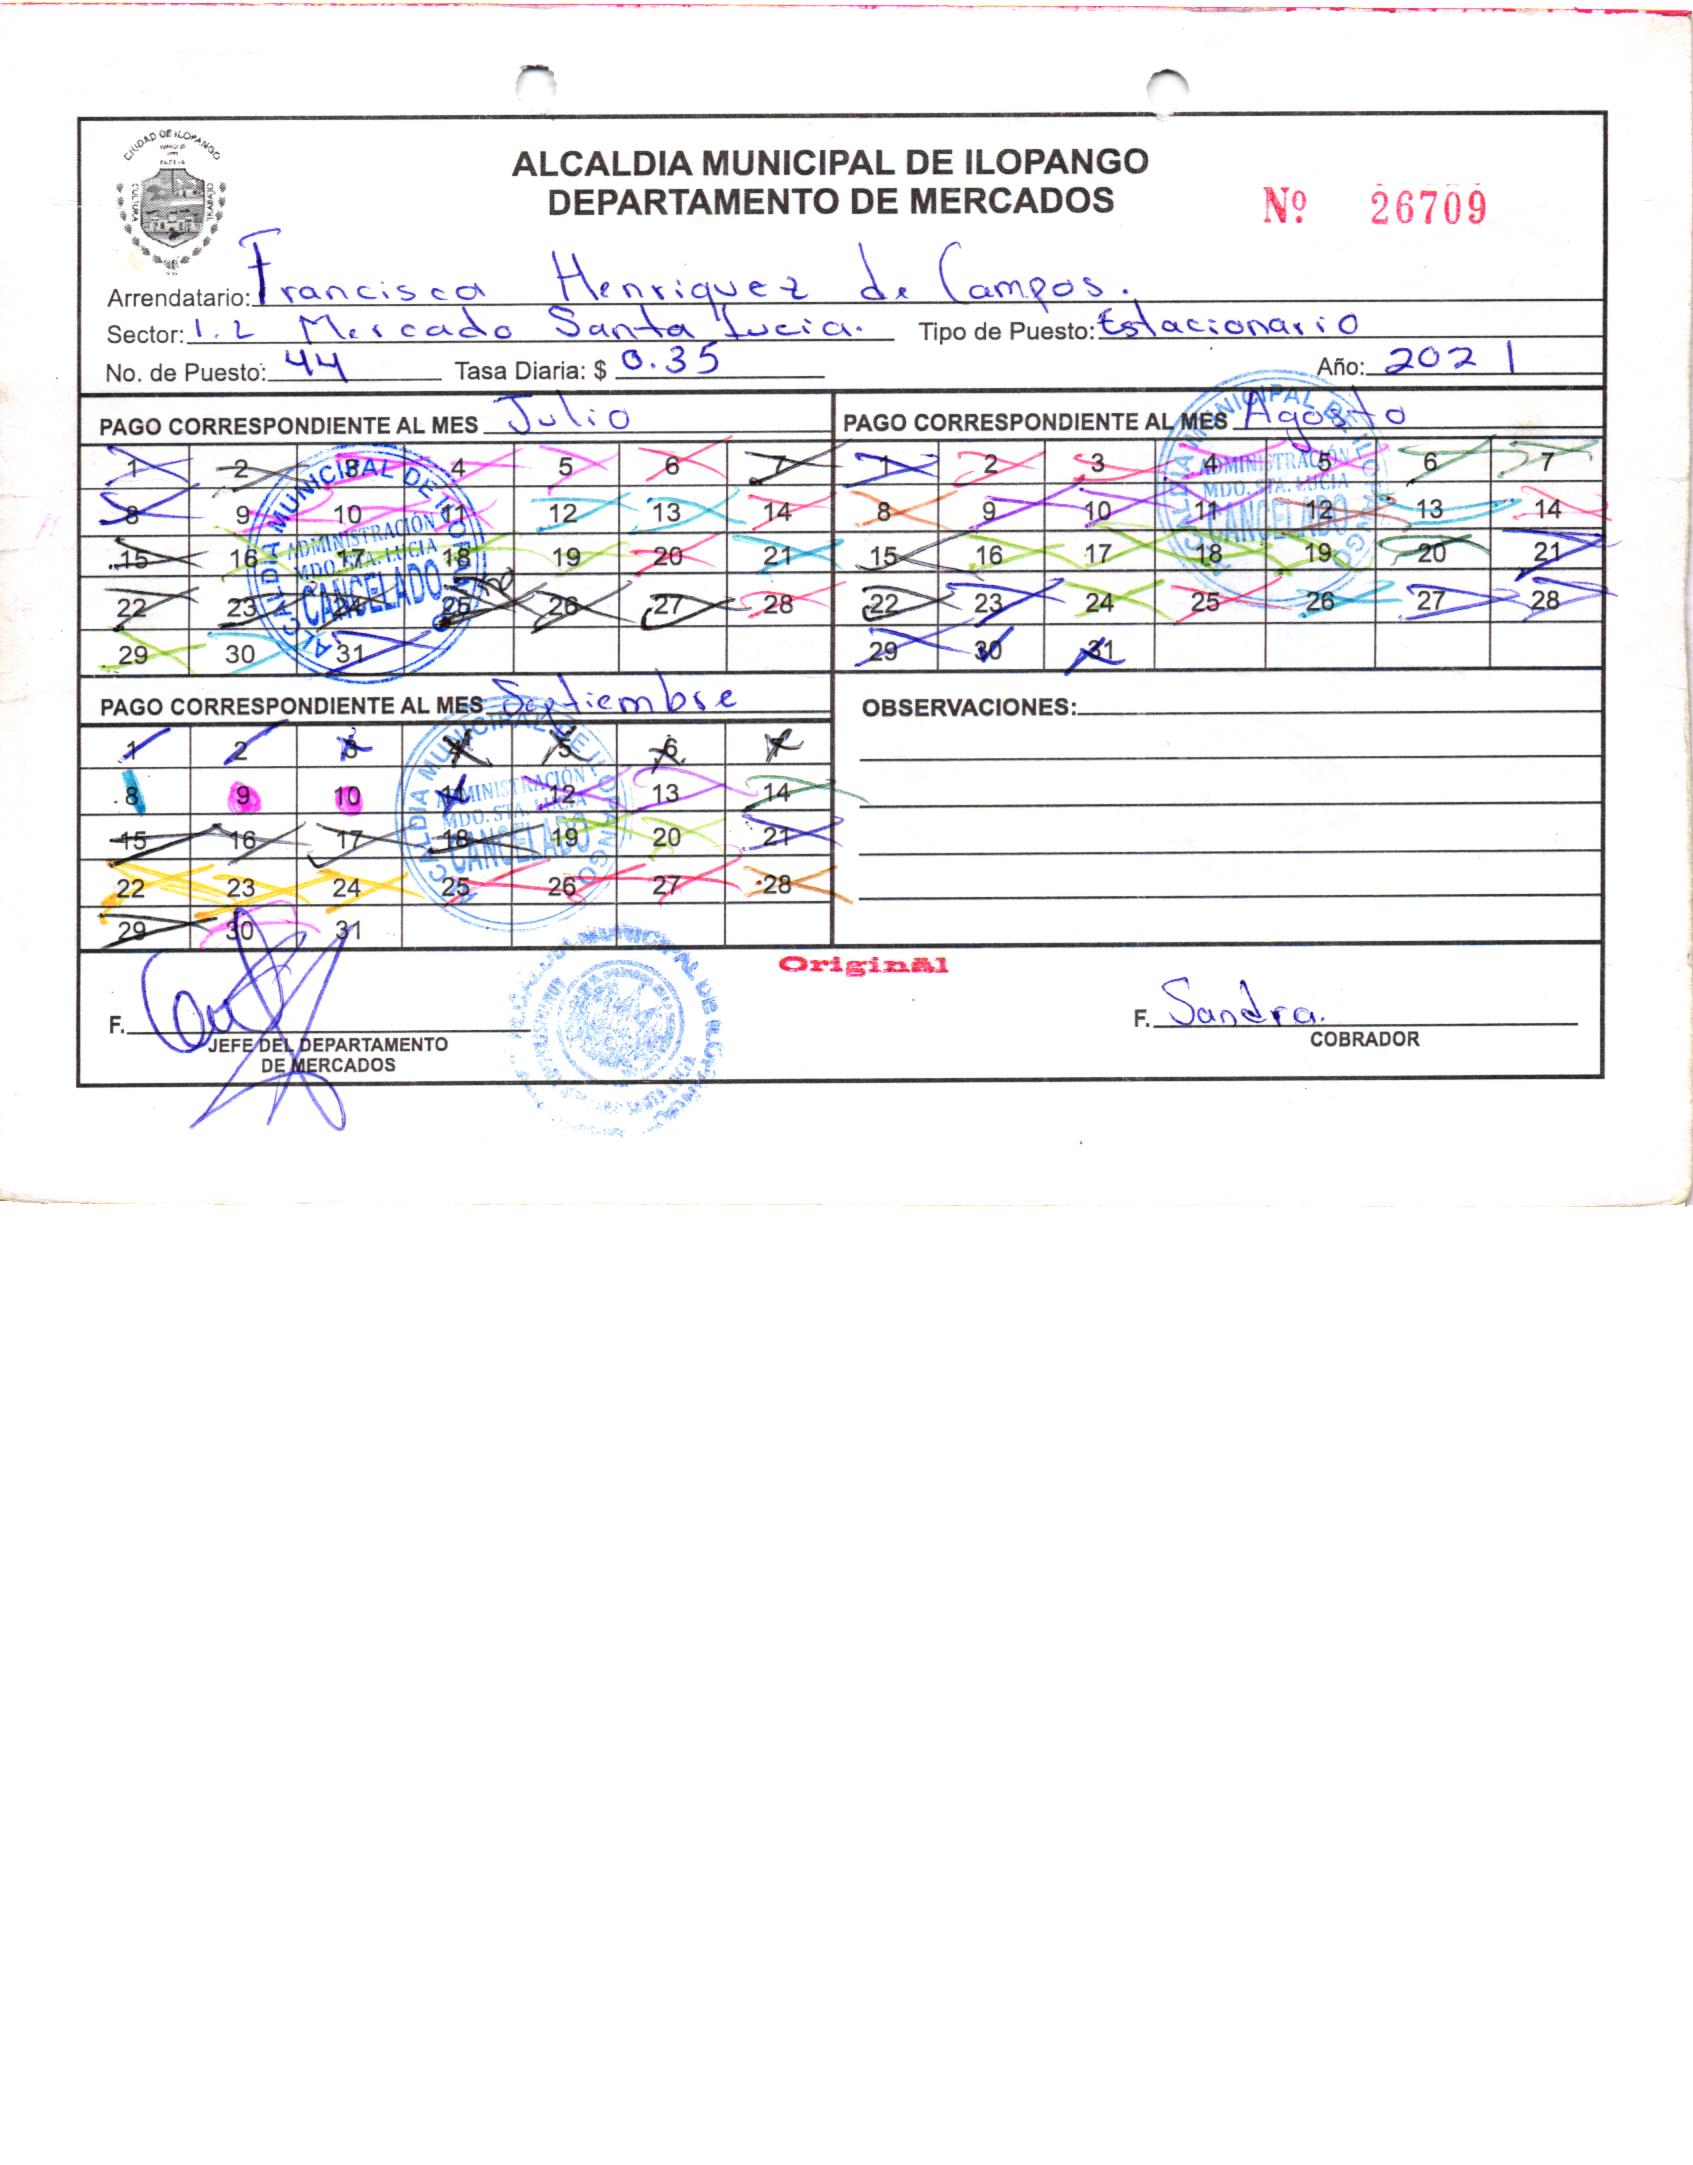 CIUDAD DE ILOPANGO
CULTURA
TRABAJO
ALCALDIA MUNICIPAL DE ILOPANGO
DEPARTAMENTO DE MERCADOS
Nº 26709
Arrendatario: Francisca Henriquez de Campos.
Sector: 1.2 Mercado Santa Lucia. Tipo de Puesto: Estacionario
No. de Puesto: 44 Tasa Diaria: $ 0.35 Año: 2021
PAGO CORRESPONDIENTE AL MES Julio
1 2 3 4 5 6 7
8 9 10 11 12 13 14
15 16 17 18 19 20 21
22 23 24 25 26 27 28
29 30 31
ALCALDIA MUNICIPAL DE ILOPANGO
ADMINISTRACIÓN
MDO. STA. LUCIA
CANCELADO
PAGO CORRESPONDIENTE AL MES Agosto
1 2 3 4 5 6 7
8 9 10 11 12 13 14
15 16 17 18 19 20 21
22 23 24 25 26 27 28
29 30 31
ALCALDIA MUNICIPAL DE ILOPANGO
ADMINISTRACIÓN
MDO. STA. LUCIA
CANCELADO
PAGO CORRESPONDIENTE AL MES Septiembre
1 2 3 4 5 6 7
8 9 10 11 12 13 14
15 16 17 18 19 20 21
22 23 24 25 26 27 28
29 30 31
ALCALDIA MUNICIPAL DE ILOPANGO
ADMINISTRACIÓN
MDO. STA. LUCIA
CANCELADO
OBSERVACIONES:
Original
F.
JEFE DEL DEPARTAMENTO
DE MERCADOS
F. Sandra.
COBRADOR